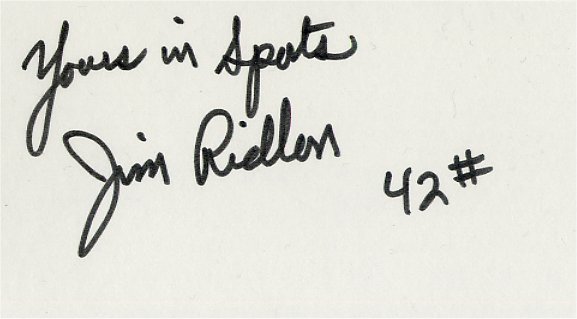 Yours in Spots
Jim Ridlon
42#